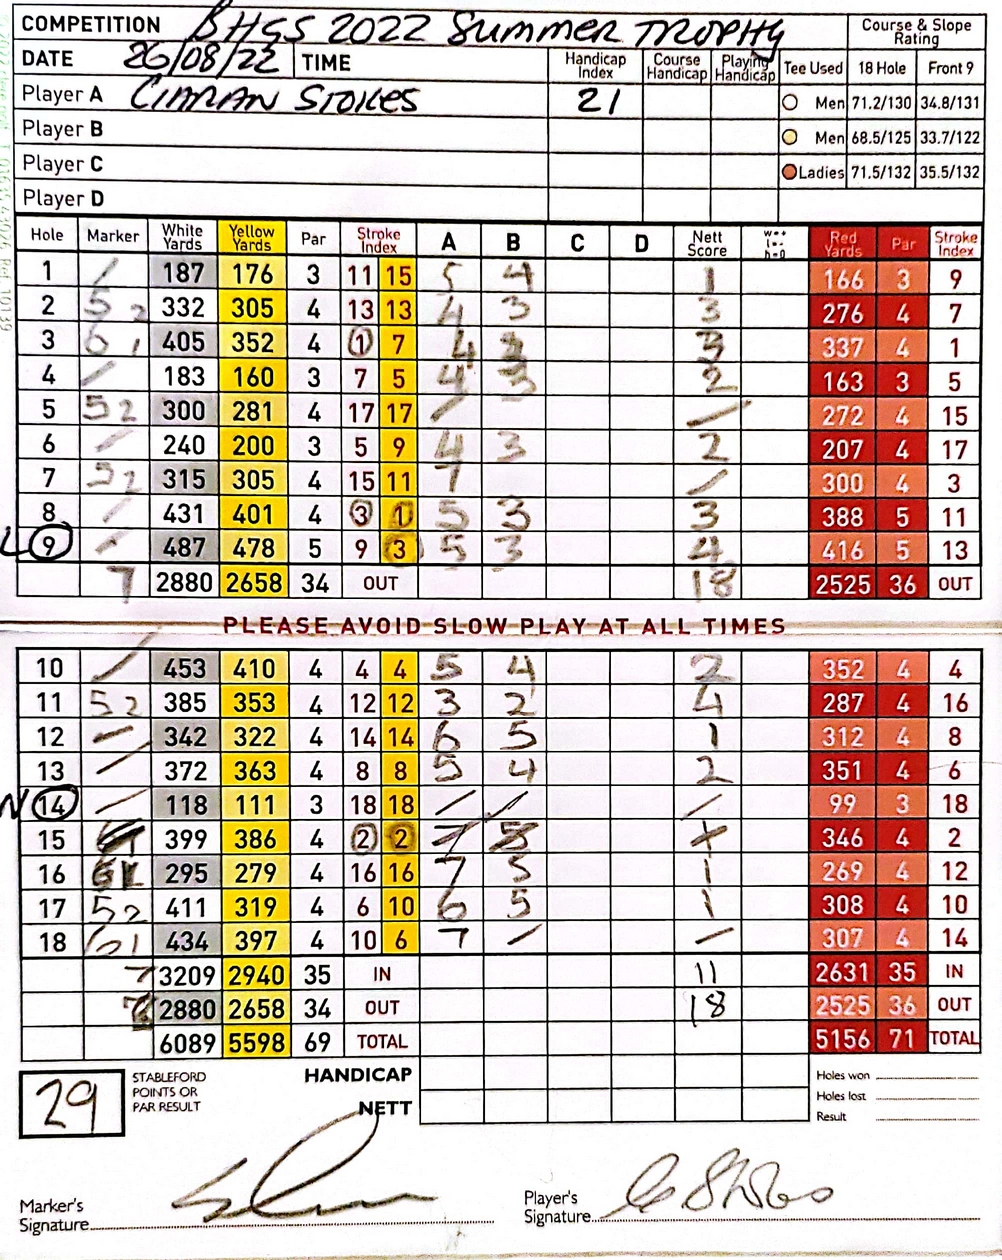 COMPETITION BHGS 2022 Summer TROPHY Course & Slope Rating
DATE 26/08/22 TIME Handicap Index Course Handicap Playing Handicap Tee Used 18 Hole Front 9
Player A CIARAN STOKES 21 Men 71.2/130 34.8/131
Player B Men 68.5/125 33.7/122
Player C Ladies 71.5/132 35.5/132
Player D
Hole Marker White Yards Yellow Yards Par Stroke Index A B C D Nett Score W=+ L=- h=0 Red Yards Par Stroke Index
1 / 187 176 3 11 15 5 4 1 166 3 9
2 5 2 332 305 4 13 13 4 3 3 276 4 7
3 6 1 405 352 4 1 7 4 3 337 4 1
4 / 183 160 3 7 5 4 3 2 163 3 5
5 5 2 300 281 4 17 17 / / 272 4 15
6 / 240 200 3 5 9 4 3 2 207 4 17
7 5 2 315 305 4 15 11 7 / 300 4 3
8 / 431 401 4 3 1 5 3 3 388 5 11
L 9 / 487 478 5 9 3 5 3 4 416 5 13
7 2880 2658 34 OUT 18 2525 36 OUT
PLEASE AVOID SLOW PLAY AT ALL TIMES
10 / 453 410 4 4 4 5 4 2 352 4 4
11 5 2 385 353 4 12 12 3 2 4 287 4 16
12 / 342 322 4 14 14 6 5 1 312 4 8
13 / 372 363 4 8 8 5 4 2 351 4 6
N 14 / 118 111 3 18 18 / / / 99 3 18
15 399 386 4 2 2 7 5 346 4 2
16 295 279 4 16 16 7 5 1 269 4 12
17 5 2 411 319 4 6 10 6 5 1 308 4 10
18 6 1 434 397 4 10 6 7 / / 307 4 14
7 3209 2940 35 IN 11 2631 35 IN
2880 2658 34 OUT 18 2525 36 OUT
6089 5598 69 TOTAL 5156 71 TOTAL
29 STABLEFORD POINTS OR PAR RESULT HANDICAP Holes won
Holes lost
NETT Result
Marker's Signature Player's Signature C Stokes